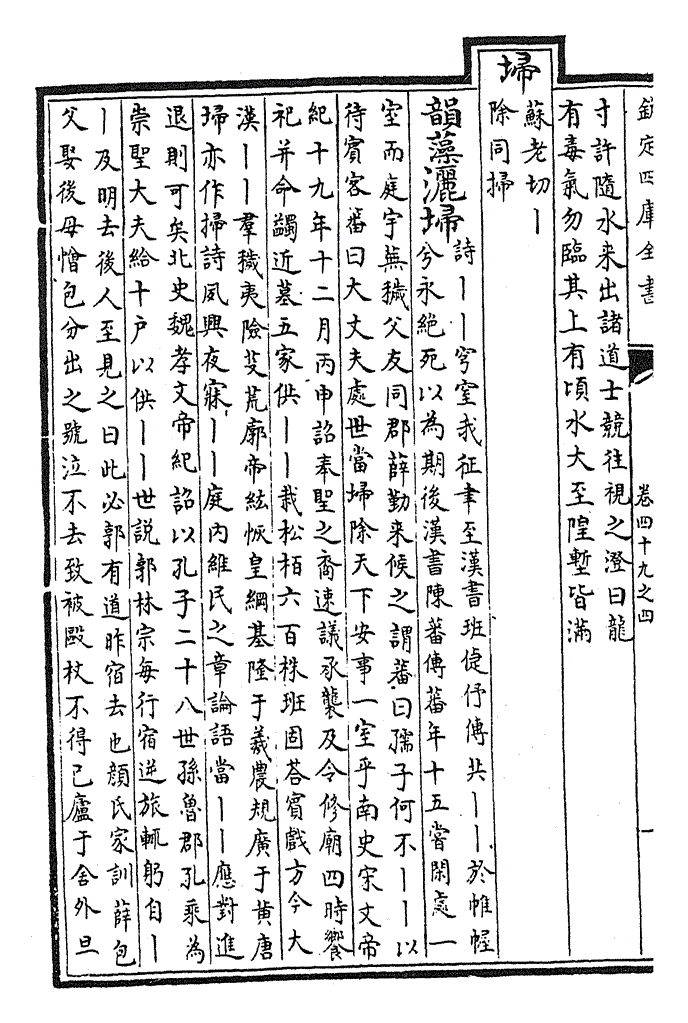 欽定四庫全書
卷四十九之四
一
寸許隨水来出諸道士競往視之澄曰龍
有毒氣勿臨其上有頃水大至隍塹皆滿
埽
蘇老切丨
除同掃
韻藻灑埽
詩丨丨穹窒我征聿至漢書班倢伃傳共丨丨於帷幄
兮永絶死以為期後漢書陳蕃傳蕃年十五嘗閑處一
室而庭宇蕪穢父友同郡薛勤来候之謂蕃曰孺子何不丨丨以
待賓客蕃曰大丈夫處世當埽除天下安事一室乎南史宋文帝
紀十九年十二月丙申詔奉聖之裔速議承襲及令修廟四時饗
祀并命蠲近墓五家供丨丨栽松栢六百株班固荅賓戲方今大
漢丨丨羣穢夷險芟荒廓帝紘恢皇綱基隆于羲農規廣于黄唐
埽亦作掃詩夙興夜寐丨丨庭内維民之章論語當丨丨應對進
退則可矣北史魏孝文帝紀詔以孔子二十八世孫魯郡孔乘為
崇聖大夫給十户以供丨丨世說郭林宗每行宿逆旅輒躬自丨
丨及明去後人至見之曰此必郭有道昨宿去也顔氏家訓薛包
父娶後母憎包分出之號泣不去致被毆杖不得已廬于舍外旦